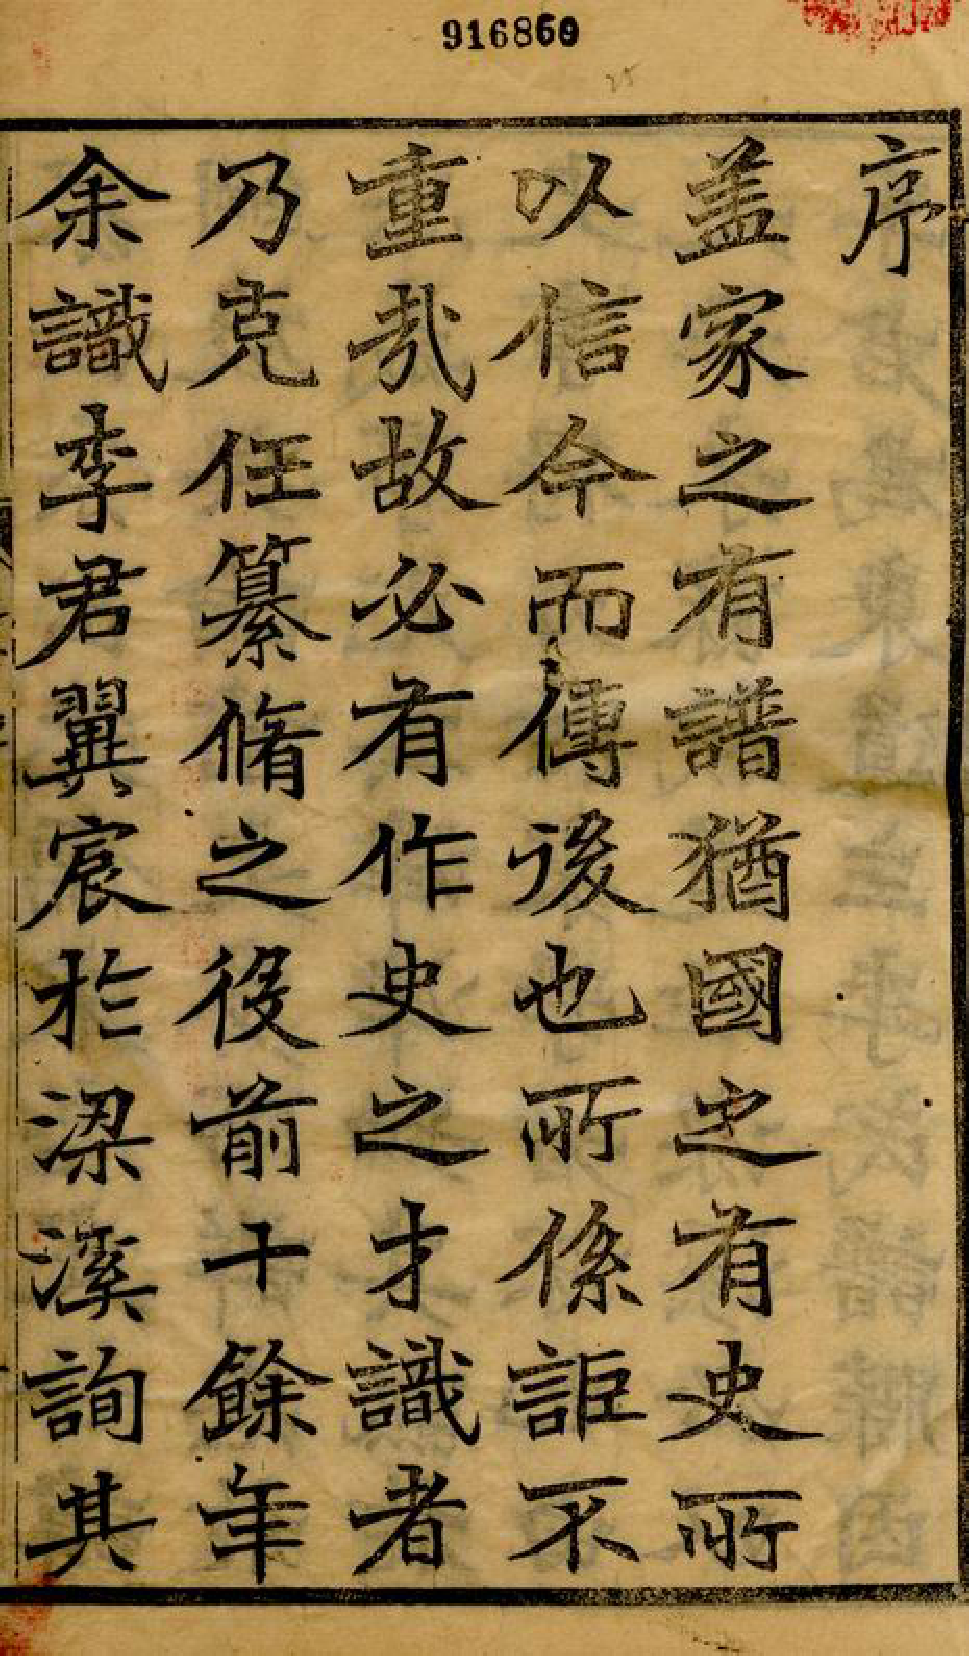 916860
序
盖家之有譜猶國之有史所
以信今而傳後也所係詎不
重哉故必有作史之才識者
乃克任纂脩之役前十餘年
余識李君翼宸於梁溪詢其